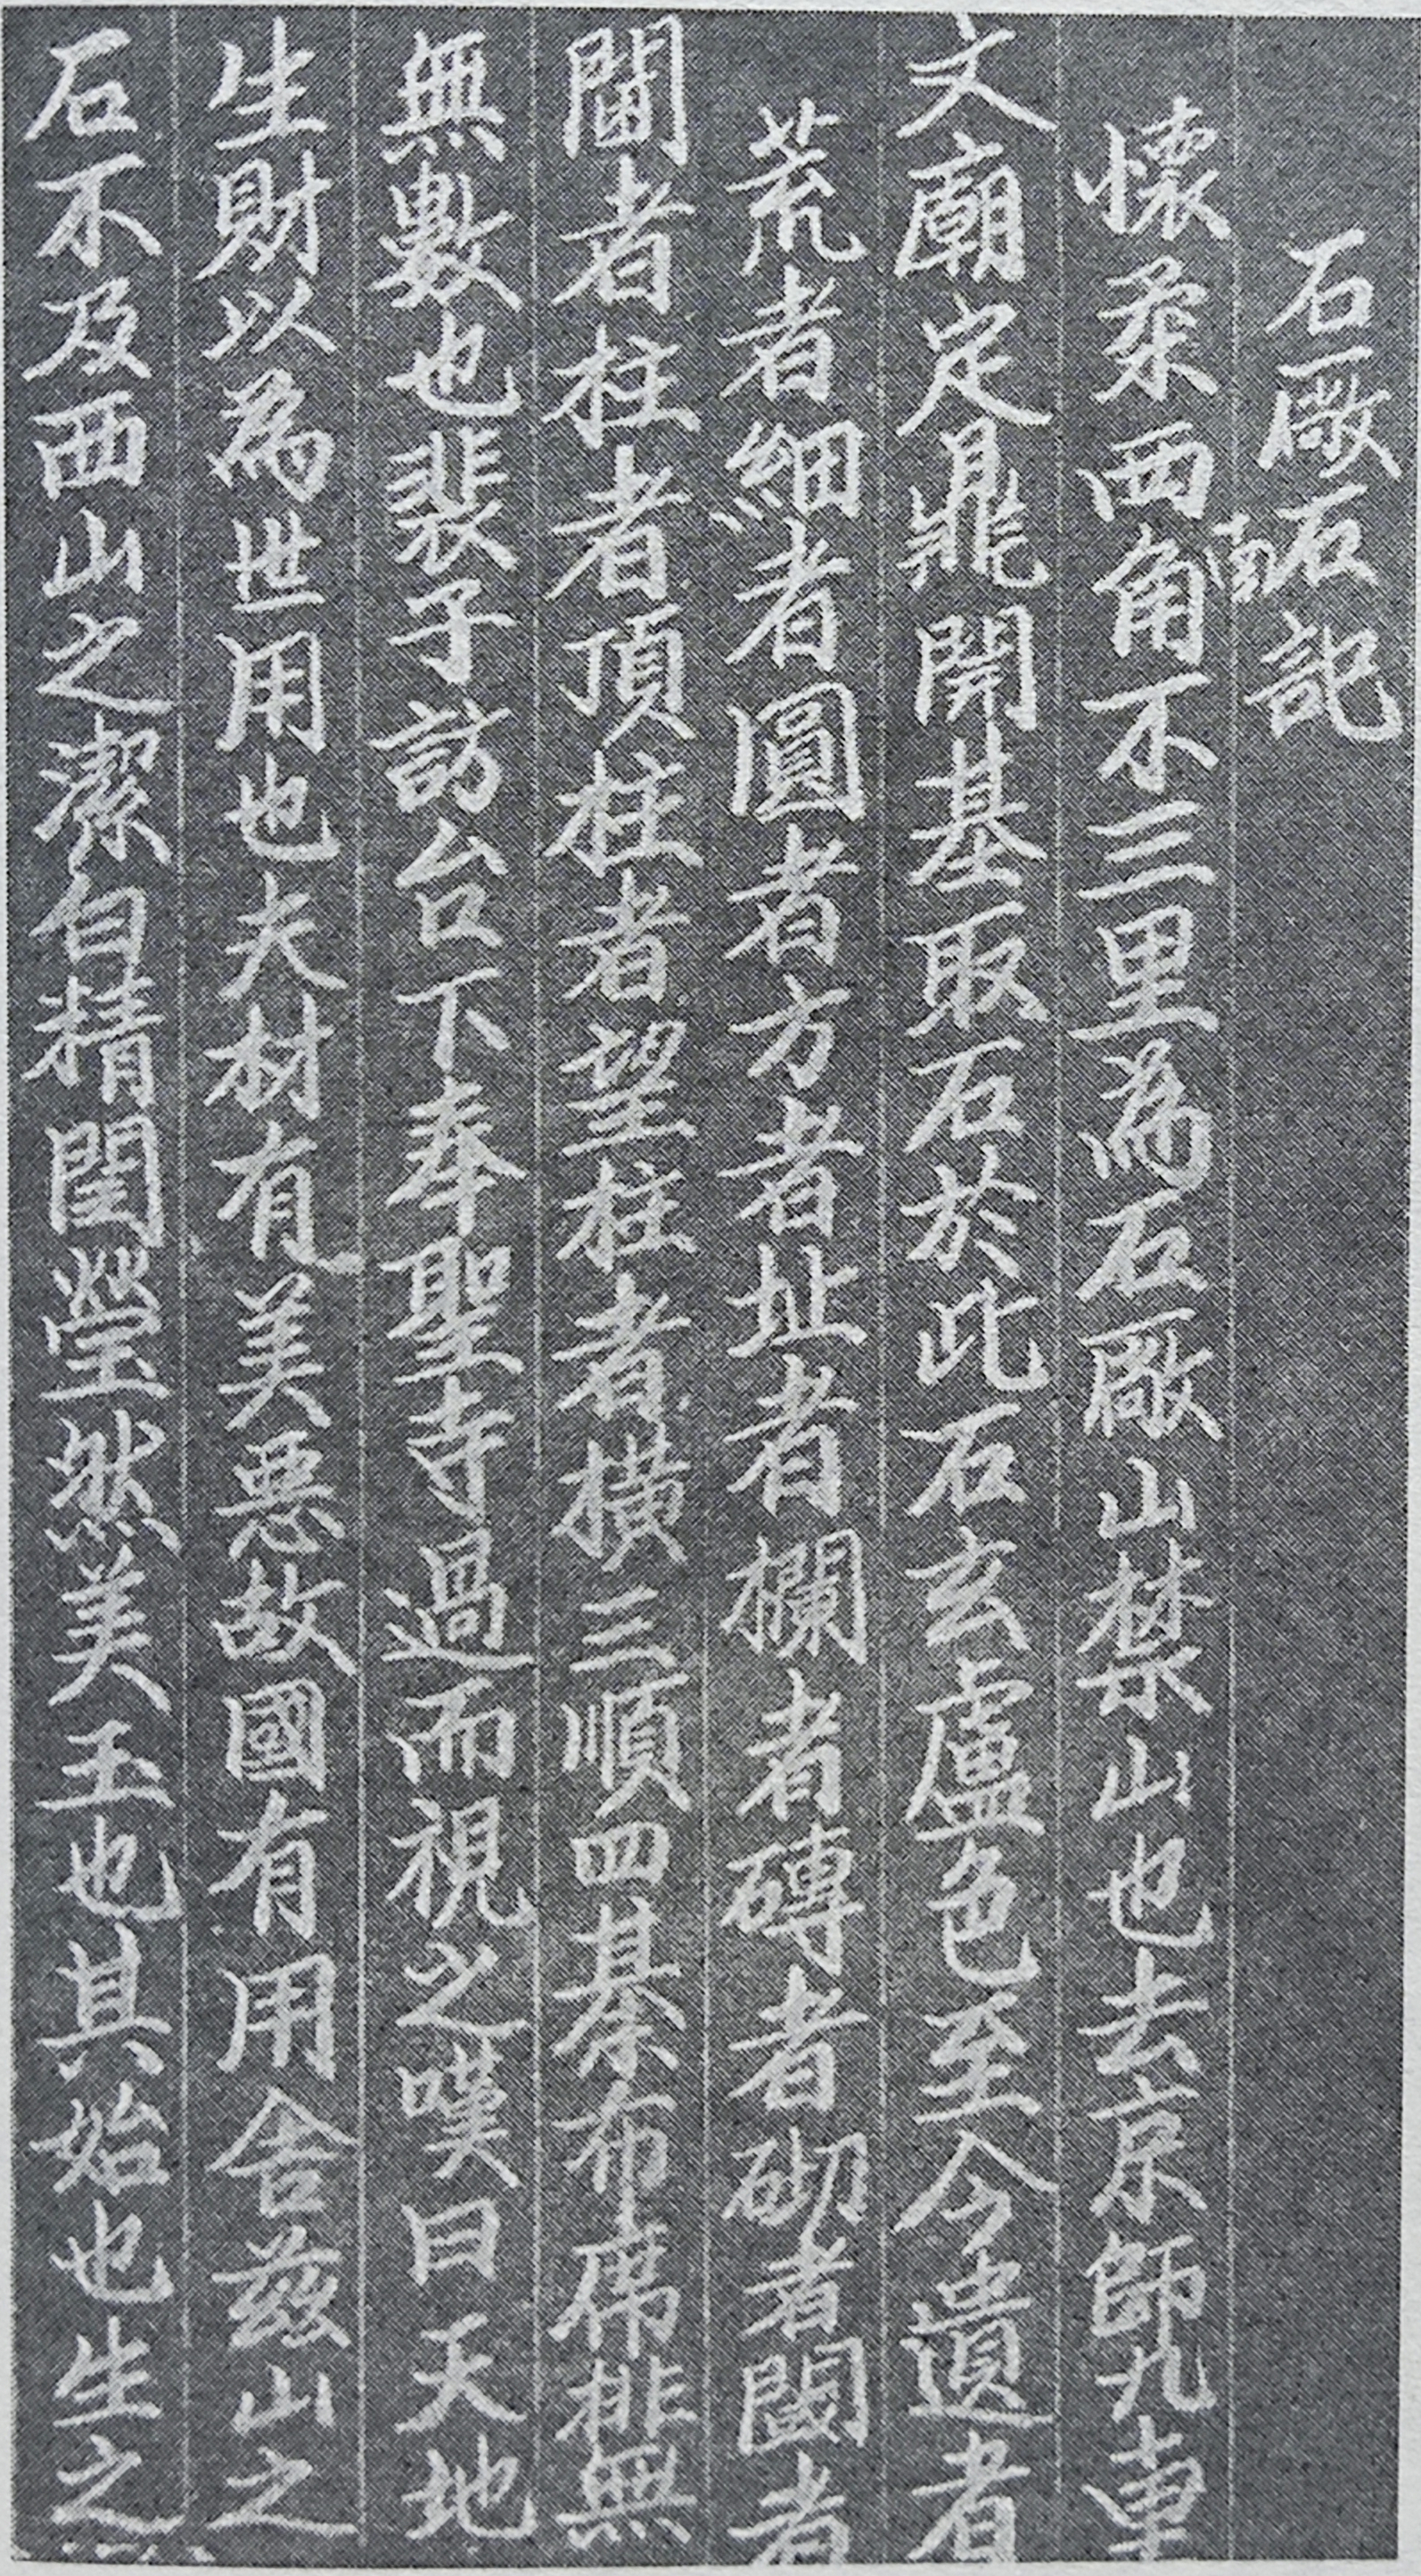 石廠石記
懷柔西南角不三里為石廠山禁山也去京師九專
文廟定鼎開基取石於此石玄盧色至今遺者
荒者細者圓者方者址者欄者磚者砌者閾者
閫者柱者頂柱者望柱者橫三順四碁布席排無
無數也裴子訪台下奉聖寺過而視之嘆曰天地
生財以為世用也夫材有美惡故國有用舍茲山之
石不及西山之潔白精閏瑩然美玉也其始也生之